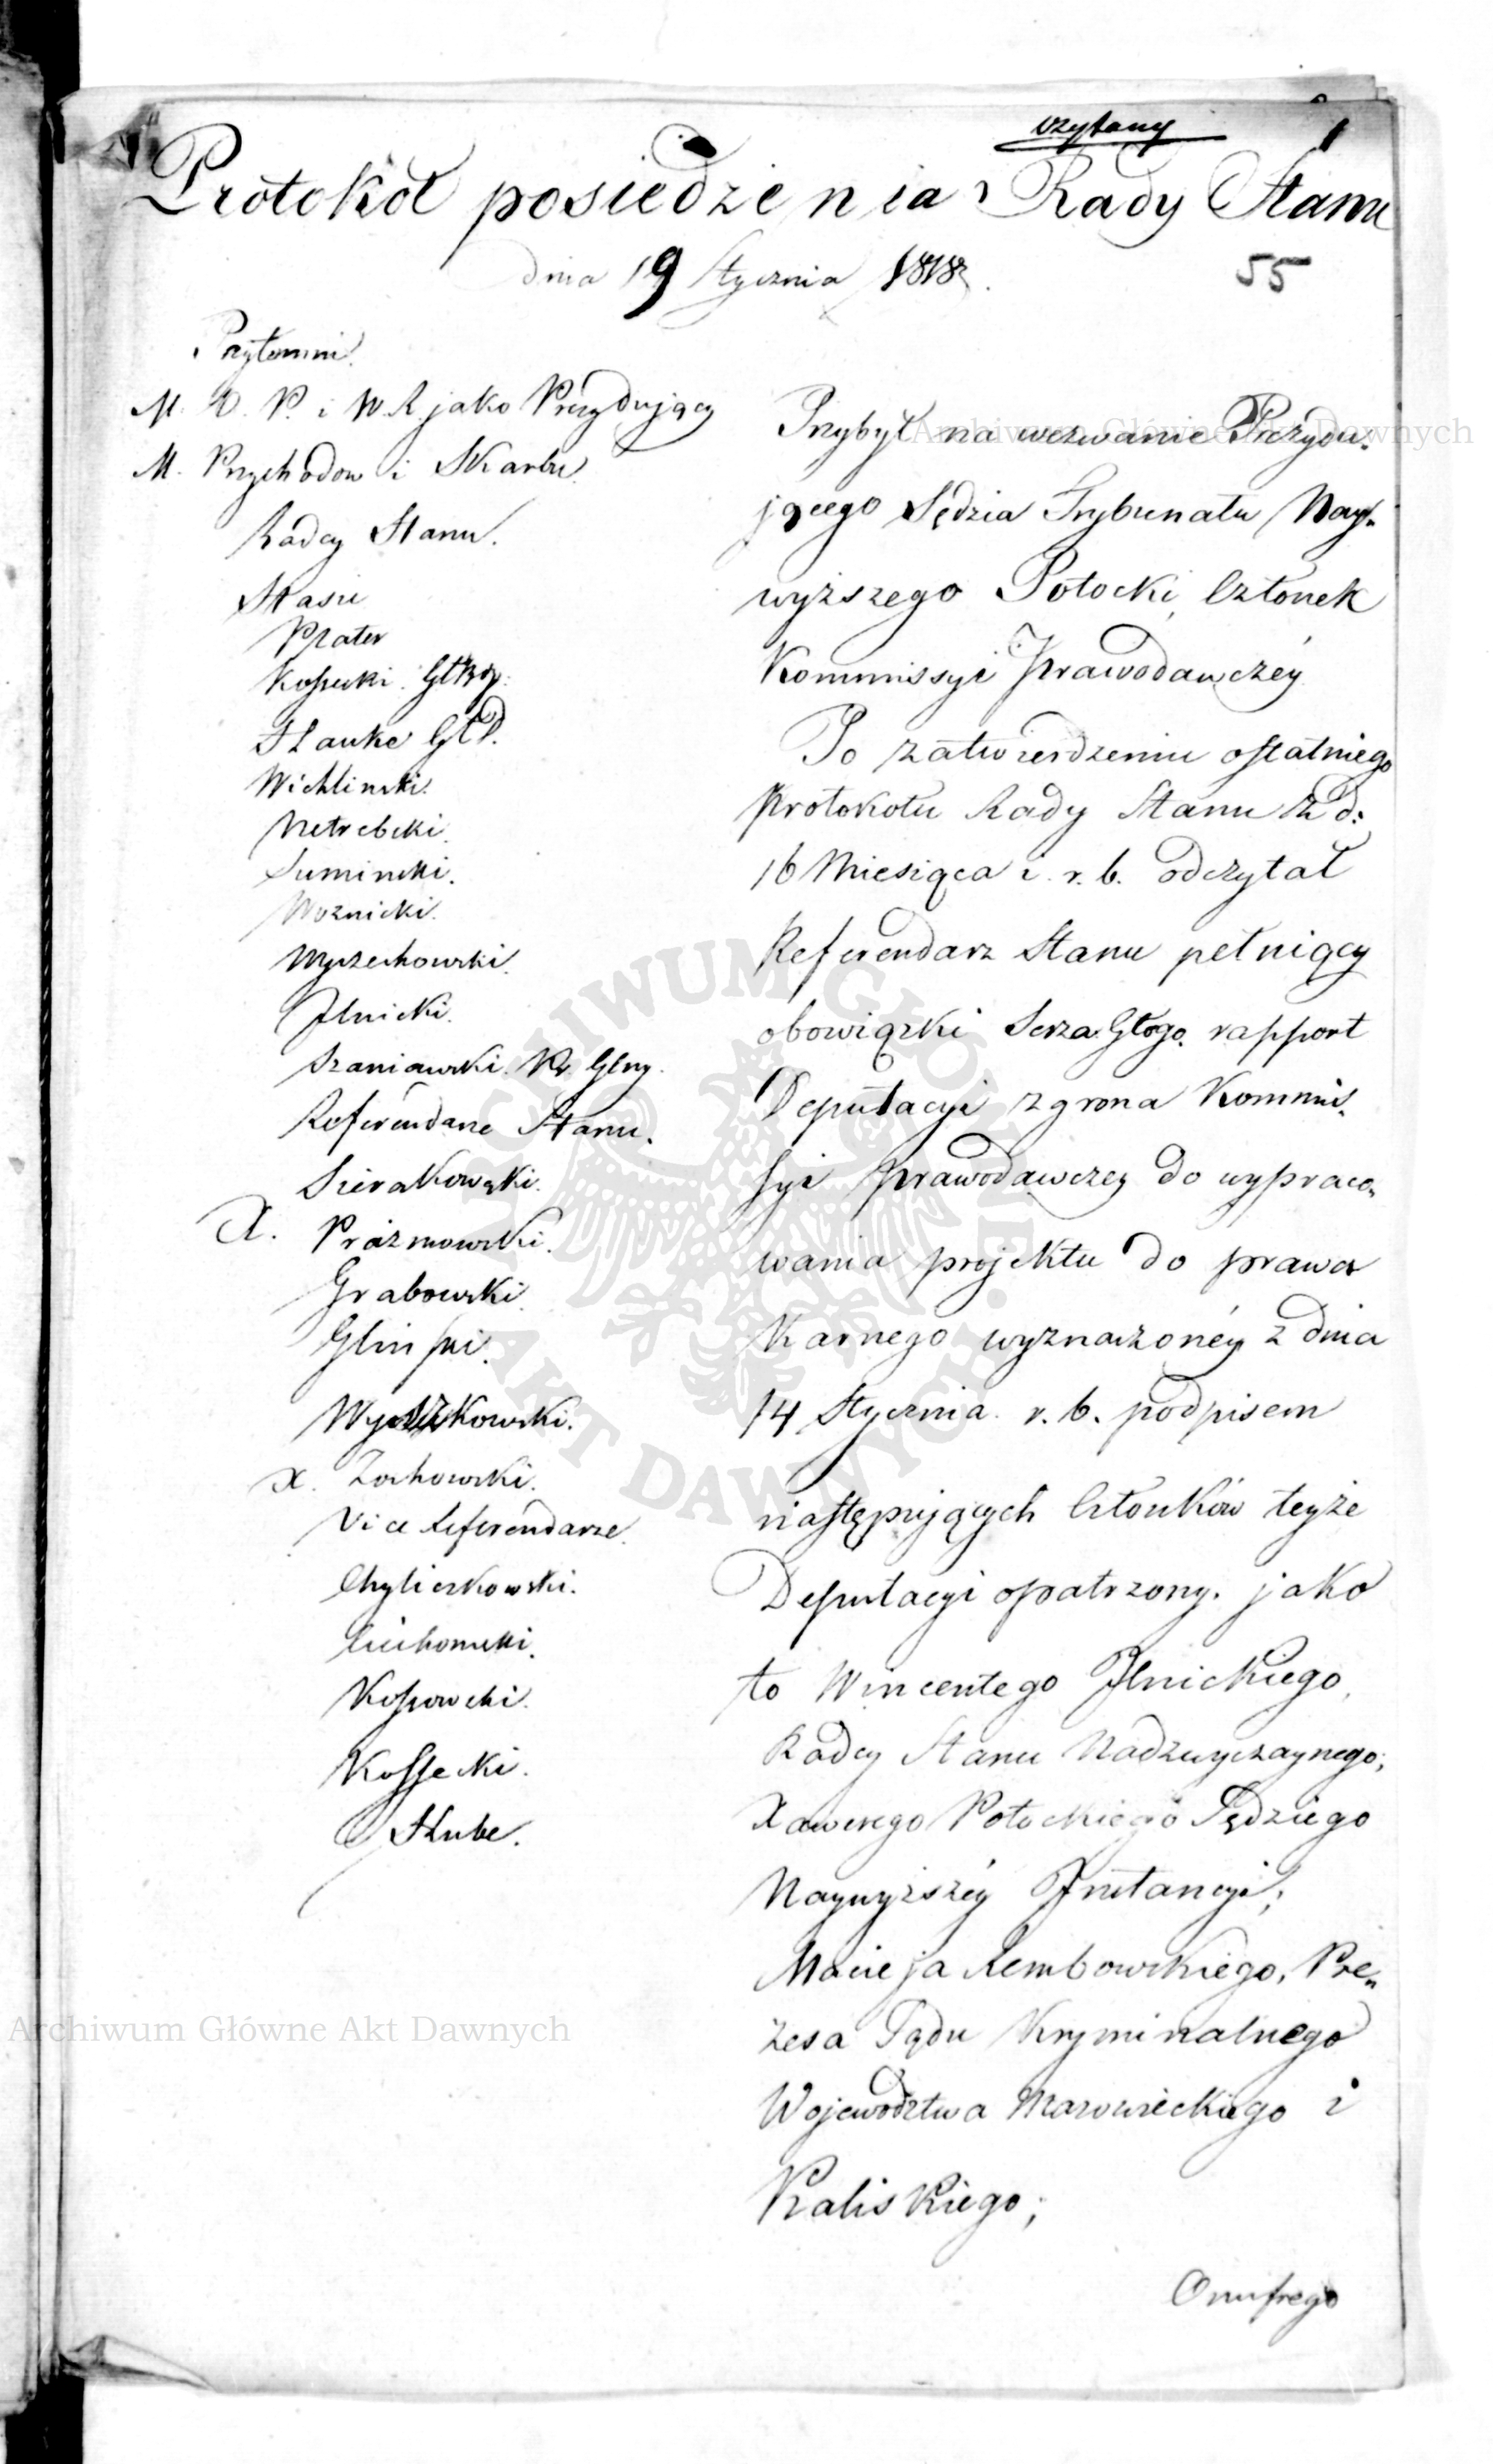 czytany
1
Protokół posiedzenia Rady Stanu
dnia 19 Stycznia 1818
55
Przytomni.
M. O. P. i W. R. jako Prezydujący
M. Przychodow i Skarbu
Radcy Stanu.
Stasic
Plater
Kossecki
Hauke
Wichlinski.
Netrebski.
Suminski.
Woznicki.
Wyczechowski.
Ilnicki.
Szaniawski. Pr. Glny.
Referendarze Stanu.
Sierakowski.
X. Prażmowski.
Grabowski
Glinski.
X. Zochowski.
Vice Referendarze.
Chyliczkowski.
Ciechomski.
Kossowski.
Kossecki.
Hube.
Przybył na wezwanie Prezydu:
jącego Sędzia Trybunału Nay:
wyższego Potocki, Członek
Kommissyi Prawodawczéy
Po zatwierdzeniu ostatniego
Protokołu Rady Stanu z d:
16 Miesiąca i. r. b. odczytał
Referendarz Stanu pełniący
obowiązki Serza Głgo. rapport
Deputacyi z grona Kommis:
syi prawodawczey do wypraco:
wania projektu do prawa
Karnego wyznaczonéy z dnia
14 Stycznia r. b. podpisem
następujących Członków teyże
Deputacyi opatrzony. jako
to Wincentego Ilnickiego,
Radcy Stanu Nadzwyczaynego;
Xawerego Potockiego Sędziego
Naywyższéy Instancyi;
Macieja Rembowskiego, Pre:
zesa Sądu Kryminalnego
Województwa Mazowieckiego i
Kaliskiego;
Onufrego
Archiwum Główne Akt Dawnych
ARCHIWUM GŁÓWNE AKT DAWNYCH
Archiwum Główne Akt Dawnych